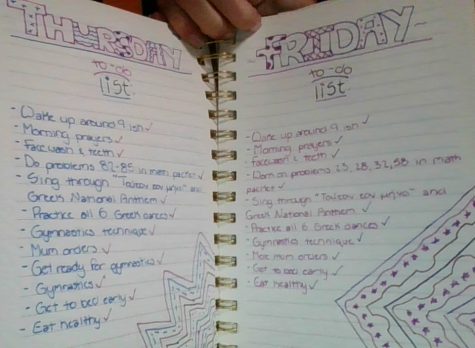 THURSDAY
to-do
list
- Wake up around 9 ish ✓
- Morning prayers ✓
- Face wash & teeth ✓
- Do problems 82-85 in math packet ✓
- Sing through "Τούτον τον μήνα" and
Greek National Anthem ✓
- Practice all 6 Greek dances ✓
- Gymnastics technique ✓
- Mum orders ✓
- Get ready for gymnastics ✓
- Gymnastics ✓
- Get to bed early ✓
- Eat healthy ✓
FRIDAY
to-do
list
- Wake up around 9 ish ✓
- Morning prayers ✓
- Face wash & teeth ✓
- Work on problems 23, 28, 32, 58 in math
packet ✓
- Sing through "Τούτον τον μήνα" and
Greek National Anthem ✓
- Practice all 6 Greek dances ✓
- Gymnastics technique ✓
- mum orders ✓
- Get to bed early ✓
- Eat healthy ✓